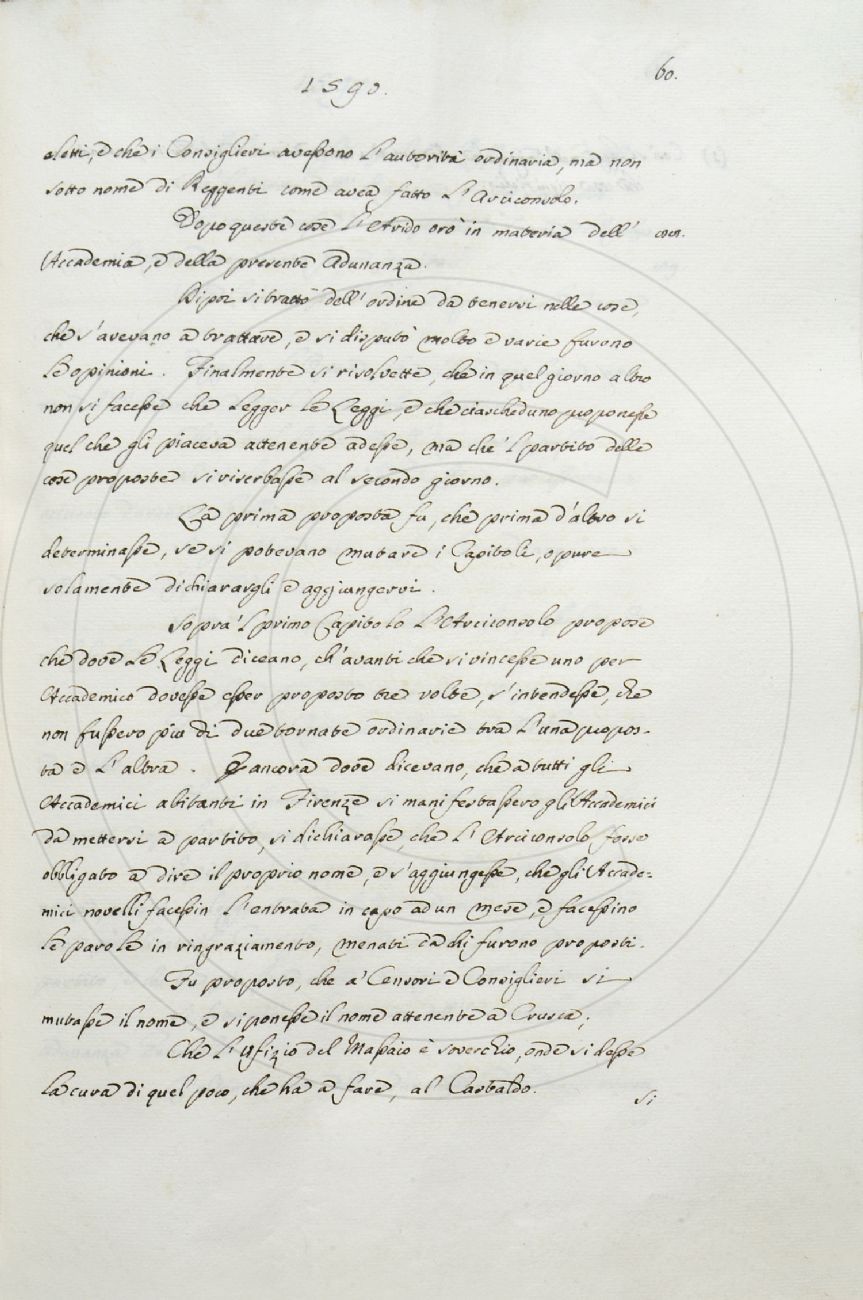 60.
1590.
eletti, e che i Consiglieri avessono l'autorità ordinaria, ma non
sotto nome di Reggenti come avea fatto l'Arciconsolo.
Dopo queste cose l'Arido orò in materia dell'
Accademia, e della presente Adunanza.
Dipoi si trattò dell'ordine da tenersi nelle cose,
che s'avevano a trattare, e si disputò molto e varie furono
le opinioni. Finalmente si risolvette, che in quel giorno altro
non si facesse che legger le Leggi, e che ciascheduno proponesse
quel che gli piaceva attenente adesse, ma che 'l partito delle
cose proposte si riserbasse al secondo giorno.
La prima proposta fu, che prima d'altro si
determinasse, se si potevano mutare i Capitoli, o pure
solamente dichiarargli e aggiungervi.
Sopra 'l primo Capitolo l'Arciconsolo propose
che dove le Leggi diceano, ch'avanti che si vincesse uno per
Accademico dovesse esser proposto tre volte, s'intendesse, che
non fussero più di due tornate ordinarie tra l'una propos-
ta e l'altra. E ancora dove dicevano, che a tutti gli
Accademici abitanti in Firenze si manifestassero gli Accademici
da mettersi a partito, si dichiarasse, che l'Arciconsolo fosse
obbligato a dire il proprio nome, e s'aggiungesse, che gli Accade=
mici novelli facessin l'entrata in capo ad un mese, e facessino
le parole in ringraziamento, menati da chi furono proposti.
Fu proposto, che a' Censori e Consiglieri si
mutasse il nome, e si ponesse il nome attenente a Crusca;
Che l'Ufizio del Massaio è soverchio, onde si desse
la cura di quel poco, che ha a fare, al Castaldo.
si